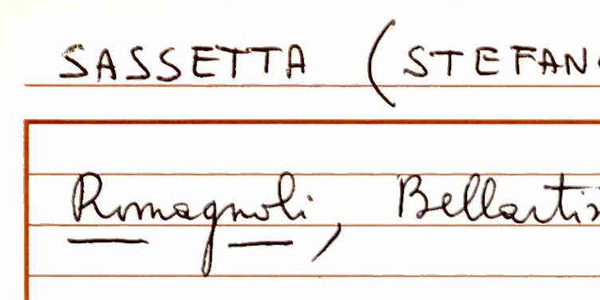 SASSETTA (STEFAN
Romagnoli, Bellartis